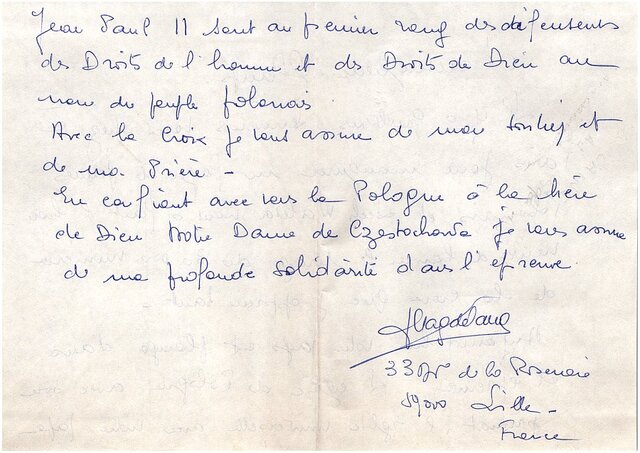 Jean Paul II sont au premier rang des défenseurs
des Droits de l'homme et des Droits de Dieu au
nom du peuple polonais.
Avec la Croix je vous assure de mon soutien et
de ma Prière -
En confiant avec vous la Pologne à la Mère
de Dieu Notre Dame de Częstochowa je vous assure
de ma profonde solidarité dans l'épreuve.
33 de la Roseraie
59000 Lille -
France